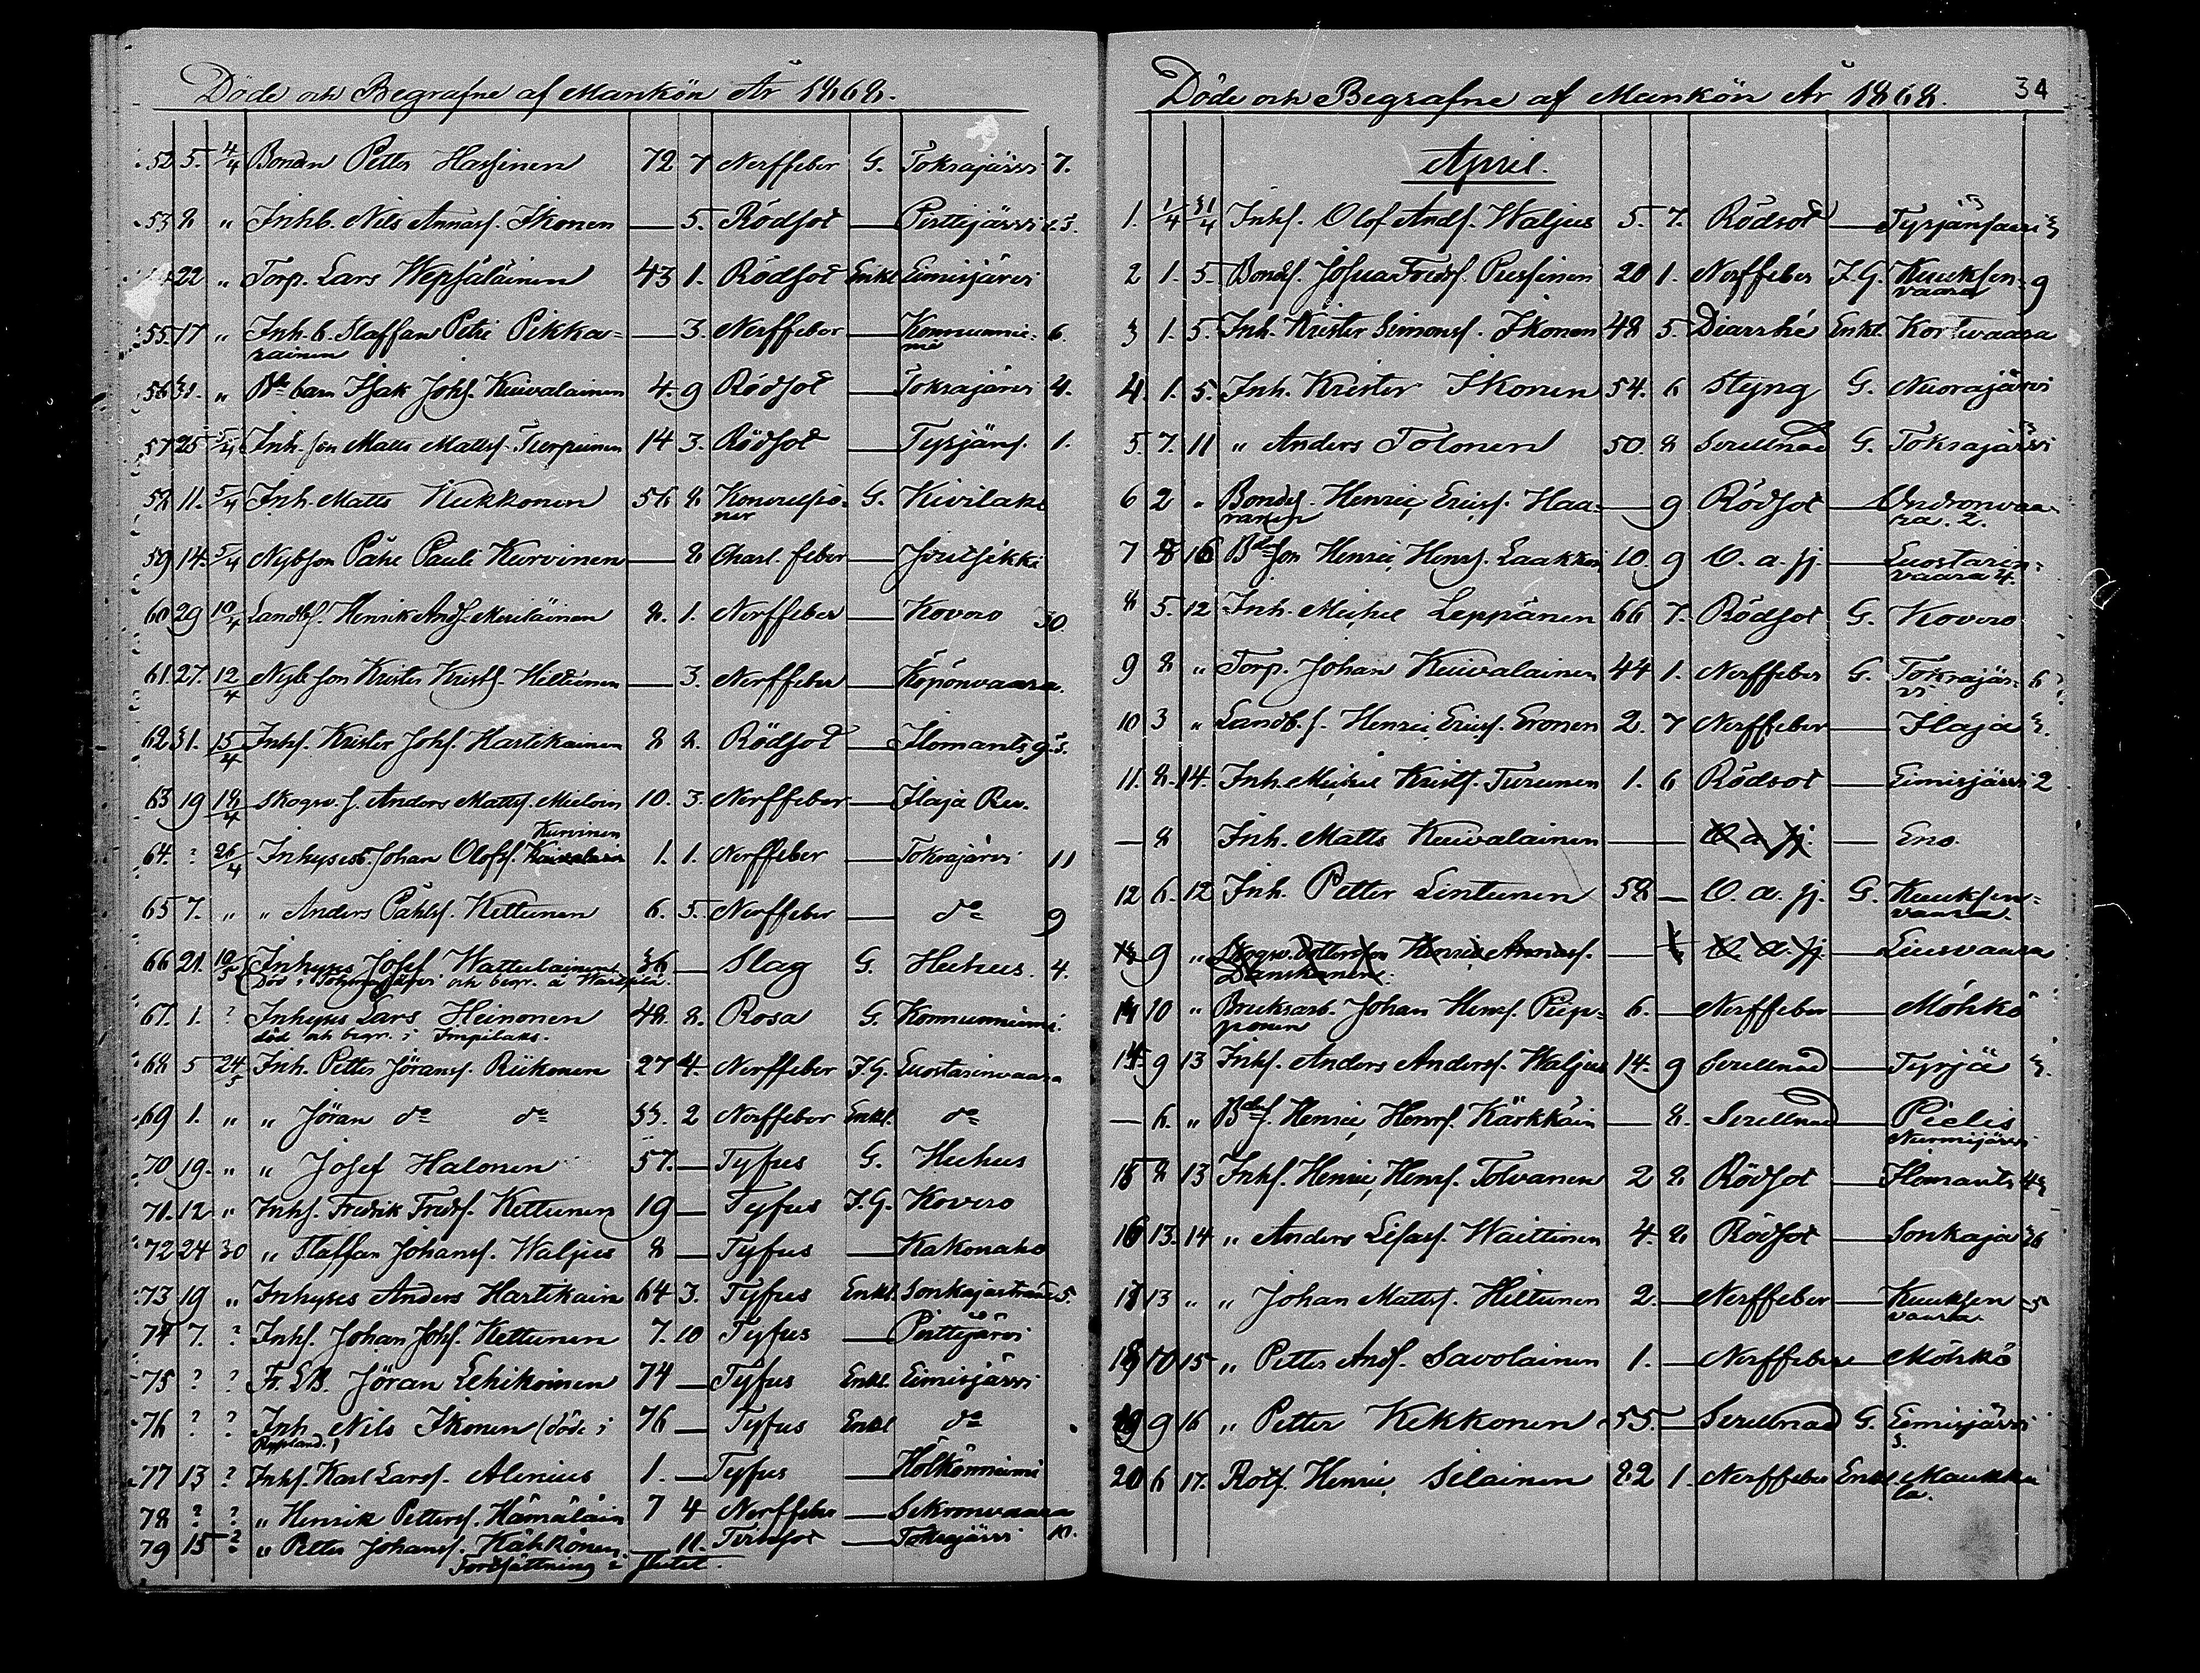 Döde och Begrafne af Mankön År 1868.
52 5. 4/4 Bonden Petter Hassinen 72. 7 Nerffeber G. Tokrajärvi 7.
53 8 " Inhb. Nils Annasf. Ikonen — 5. Rödsot — Perttijärvi
22 " Torp. Lars Wepsäläinen 43 1. Rödsot Enkl Eimisjärvi
55. 17 " Inh. b. Staffan Petri Pikka=
rainen — 3. Nerffeber — 6.
56 31. " Bde barn Isak Johs. Kuivalainen 4. 9 Rödsot — Tokrajärvi 4.
57 25 Inh. son Matts Mattsf. Turpeinen 14 3. Rödsot — Tyrjäns. 1.
58 11. 5/4 Inh. Matts Kukkonen 56 8 Konvulsio-
ner G. Kivilaks
59 14. 5/4 Nybson Påhl Pauli Kurvinen — 8 Charl. feber —
60 29 10/4 Landbs. Henrik Andsf. Meriläinen 8. 1. Nerffeber — Kovero 30.
61. 27. 12/4 Nybson Krister Kristf. Hiltunen — 3. Nerffeber — Köpönvaara.
62 31. 15/4 Inhs. Krister Johs. Hartikainen 8 8. Rödsot — Ilomants
63 19 18/4 Skogw. s. Anders Mattsf. 10. 3. Nerffeber — Ilaja Rev.
Kurvinen
64. ? 26/4 Inhysesb. Johan Olofsf. 1. 1. Nerffeber — Tokrajärvi 11
65 7. " " Anders Påhlsf. Kettunen 6. 5. Nerffeber — do 9
66 21. 10/5 Inhyses Josef Wattulainen 36 — Slag G. Huhus. 4.
Död i Tohmajärvi och begr. å
67. 1. ? Inhyses Lars Heinonen 48. 8. Rosa G.
död och begr. i Impilaks.
68 5 24/5 Inh. Petter Jöransf. Riikonen 27 4. Nerffeber F.G. Luostarinvaara
69 1. " " Jöran do do 53. 2 Nerffeber Enkl. do
70 19. " " Josef Halonen 57. — Tyfus G. Huhus
71. 12 " Inhs. Fredrik Fredsf. Kettunen 19 — Tyfus F.G. Kovero
72 24 30 " Staffan Johansf. Waljus 8 — Tyfus — Kakonaho
73 19 " Inhyses Anders Hartikain 64 3. Tyfus Enkl. 5.
74 7. ? Inhs. Johan Johs. Kettunen 7. 10 Tyfus — Perttijärvi
75 ? ? Jöran Lehikoinen 74 — Tyfus Enkl. Eimisjärvi
76 ? ? Inh. Nils Ikonen (död i
Ryssland.) 76 — Tyfus Enkl do
77 13 ? Inhs. Karl Larsf. Alenius 1. — Tyfus — Hölkönniemi
78 ? ? " Henrik Pettersf. Hämäläin 7 4 Nerffeber — Sikronvaara
79 15 ? " Petter Johansf. Kähkönen — 11. — Tokrajärvi 10.
Fortsättning i slutet.
Döde och Begrafne af Mankön År 1868. 34
April.
1. 1/4 Inhs. Olof Andsf. Waljus 5. 7. Rödsot —
2 1. 5. Bondsf. Josua Fredsf. Pussinen 20 1. Nerffeber F.G. Kuuksen=
vaara 9
3 1. 5. Inh. Krister Simonsf. Ikonen 48 5. Diarrhé Enkl. Kortevaara
4. 1. 5. Inh. Krister Ikonen 54. 6 Styng G. Nuorajärvi
5. 7. 11 " Anders Tolonen 50. 8 Svullnad G. Tokrajärvi
6 2 " Bondes. Henric Ericsf. Haa-
ranen — 9 Rödsot —
ra. 2.
7 8 16 Bdeson Henric Henrsf. Laakkon 10. 9 O. a. sj. — Luostarin=
vaara 4.
8 5. 12 Inh. Michel Leppänen 66 7. Rödsot G. Kovero
9 8 " Torp. Johan Kuivalainen 44 1. Nerffeber G. Tokrajär-
vi 6
10 3 " Landb. s. Henric Ericsf. Eronen 2. 7 Nerffeber — Ilaja 3.
11. 8. 14. Inh. Michel Kristf. Turunen 1. 6 Rödsot — Eimisjärvi 2
— 8 Inh. Matts Kuivalainen — — O a sj. — Eno.
12 6. 12 Inh. Petter Lintunen 58 — O. a. sj. G. Kuuksen=
vaara.
13 9 " Skogw. Henric Annasf.
Danskanen. — O. a. sj. — Liusvaara
14 10 " Bruksarb. Johan Henrsf. Piip=
ponen 6. — Nerffeber — Möhkö
14. 9 13 Inhs. Anders Andersf. Waljus 14. 9 Svullnad — Tyrjä 3.
— 6. " Bdes. Henric Henrsf. Kärkkäin — 8. Svullnad — Pielis
Nurmijärvi
15 8 13 Inhs. Henric Henrsf. Tolvanen 2 8 Rödsot — Ilomants
16 13. 14 " Anders Lisasf. Waittinen 4. 8. Rödsot — Sonkaja 26
17 13 " " Johan Mattsf. Hiltunen 2. — Nerffeber — Kuuksen
vaara. 5
18 10 15 " Petter Andsf. Savolainen 1. — Nerffeber — Möhkö
19 9 16 " Petter Kekkonen 55. — Svullnad G. Eimisjärvi
20 6 17. Rotf. Henric Silainen 82 1. Nerffeber Enkl. Maukku
la.